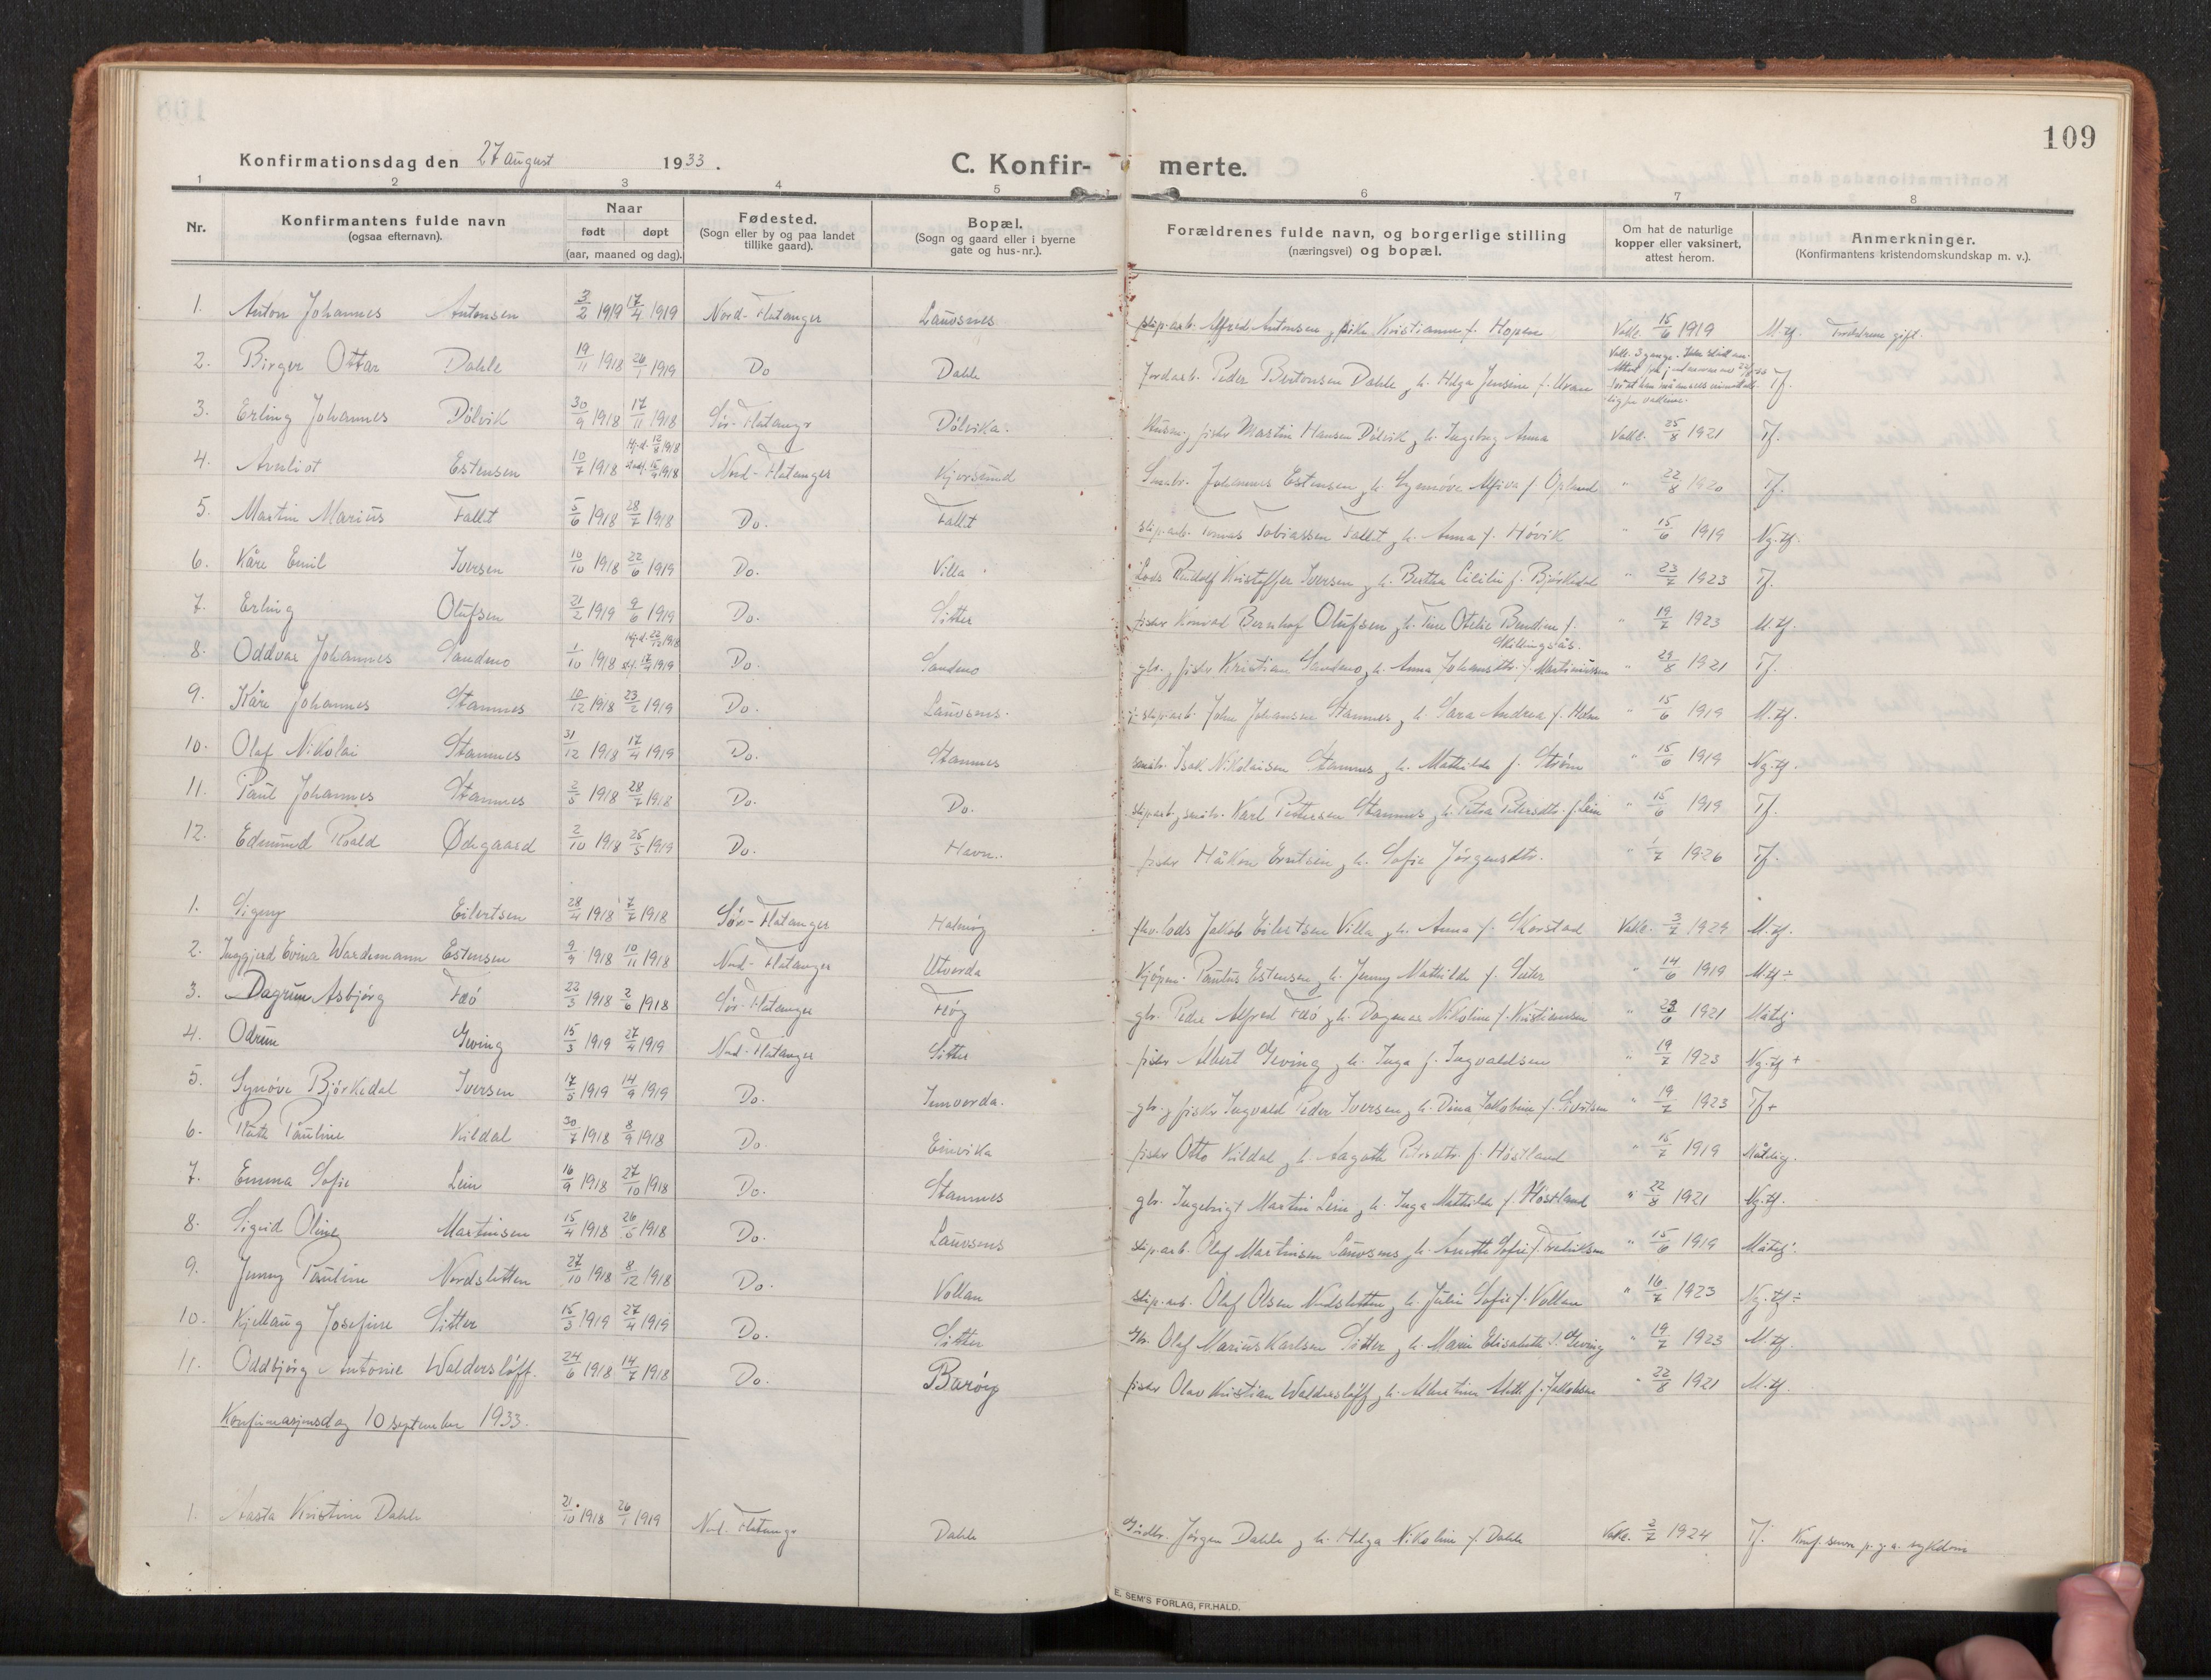 109
Konfirmationsdag den 27 august 1933.
C. Konfir- merte.
1 2 3 4 5 6 7 8
Nr.
Konfirmantens fulde navn
(ogsaa efternavn).
Naar
født døpt
(aar, maaned og dag).
Fødested.
(Sogn eller by og paa landet
tillike gaard).
Bopæl.
(Sogn og gaard eller i byerne
gate og hus-nr.).
Forældrenes fulde navn, og borgerlige stilling
(næringsvei) og bopæl.
Om hat de naturlige
kopper eller vaksinert,
attest herom.
Anmerkninger.
(Konfirmantens kristendomskundskap m. v.).
1. Anton Johannes Antonsen 3/2 1919 17/4 1919 Nord-Flatanger Lauvsnes slip.arb. Alfred Antonsen g pike Kristianna f. Hopen Vakk. 15/6 1919 M.tf. Foreldrene gift.
2. Birger Ottar Dahle 19/11 1918 26/1 1919 Do Dahle Jordarb. Peder Bertonsen Dahle g h. Helga Jensine f. Uran Vakk. 3 gange. Tf.
3. Erling Johannes Dölvik 30/9 1918 17/11 1918 Sör-Flatangr Dölvika. Husm. fisker Martin Hansen Dölvik g h. Ingebrg Anna Vakk. 25/8 1921 Tf.
4. Arnliot Estensen 10/7 1918 Hj.d. 12/8 1918 stadf. 15/9 1918 Nord-Flatanger Kjørsund Smabr. Johannes Estensen g h. Synnöve Alfiva f. Opland " 22/8 1920 Tf.
5. Martin Marius Fallt 5/6 1918 28/7 1918 Do. Fallt slip.arb. Tomas Tobiassen Fallt g h. Anna f. Hövik " 15/6 1919 Ng.tf.
6. Kåre Emil Iversen 10/10 1918 22/6 1919 Do. Villa Lods Rudolf Kristoffer Iversen g h. Bertha Cicilie f. Björkedal " 23/7 1923 Tf.
7. Erling Olufsen 21/2 1919 9/6 1919 Do. Sitter fisker Konrad Bernhof Olufsen g h. Tine Otelie Bendine f. Skillingsås. " 19/7 1923 M.tf.
8. Oddvar Johannes Sandmo 1/10 1918 Hj.d. 22/12 1918 stf. 17/4 1919 Do. Sandmo gbr. g fisker Kristian Sandmo g h. Anna Johansdtr. f. Martinussen " 29/8 1921 Tf.
9. Kåre Johannes Stamnes 10/12 1918 23/2 1919 Do. Lauvsnes. slip.arb. John Johansen Stamnes g h. Sara Andrea f. Holm " 15/6 1919 M.tf.
10. Olaf Nikolai Stamnes 31/12 1918 17/4 1919 Do. Stamnes småbr. Isak Nikolaisen Stamnes g h. Mathilde f. Ström " 15/6 1919 Ng.tf.
11. Paul Johannes Stamnes 2/5 1918 28/7 1918 Do. Do. slip.arb. g småbr. Karl Pettersen Stamnes g h. Petra Petersdtr. f. Lein " 15/6 1919 Tf.
12. Edmund Roald Ødegaard 2/10 1918 25/5 1919 Do. Havn. fisker Håkon Erntsen g h. Sofie Jörgensdtr. " 1/7 1926 Tf.
1. Signy Eilertsen 28/4 1918 7/7 1918 Sör-Flatanger Halmöy fhv. lods Jakob Eilertsen Villa g h. Anna f. Skorstad Vakk. 3/7 1929 M.tf.
2. Inggjerd Evina Wardemann Estensen 9/9 1918 10/11 1918 Nord-Flatanger Utvorda Kjöpm. Paulus Estensen g h. Jenny Mathilde f. Seter " 14/6 1919 M.tf ÷
3. Dagrun Asbjörg Flö 22/3 1918 2/6 1918 Sör-Flatanger Flöy gbr. Peder Alfred Flö g h. Dagmar Nikoline f. Kristiansen " 23/6 1921 Måtelg
4. Odrun Geving 15/3 1919 27/4 1919 Nord-Flatanger Sitter fisker Albert Geving g h. Inga f. Ingvaldsen " 19/7 1923 Ng.tf +
5. Synöve Björkedal Iversen 17/5 1919 14/9 1919 Do. Innvorda. gbr. g fisker Ingvald Peder Iversen g h. Dina Jakobine f. Sivertsen " 19/7 1923 Tf +
6. Ruth Pauline Kvildal 30/7 1918 8/9 1918 Do. Einvika fisker Otto Kvildal g h. Aagoth Petersdtr. f. Höstland " 15/7 1919 Måtelig.
7. Emma Sofie Lein 16/9 1918 27/10 1918 Do. Stamnes gbr. Ingebrigt Martin Lein g h. Inga Mathilde f. Höstland " 22/8 1921 Ng.tf.
8. Sigrid Oline Martinsen 15/4 1918 26/5 1918 Do. Lauvsnes slip.arb. Olaf Martinsen Lauvsnes g h. Anette Sofie f. Fredriksen " 15/6 1919 Måtelg.
9. Jenny Pauline Nordsletten 27/10 1918 8/12 1918 Do. Vollan slip.arb. Olaf Olsen Nordsletten g h. Julie Sofie f. Vollan " 16/7 1923 Ng.tf ÷
10. Kjellaug Josefine Sitter 15/3 1919 27/4 1919 Do. Sitter Gbr. Olaf Marius Karlsen Sitter g h. Marie Elisabeth f. Geving " 19/7 1923 M.tf.
11. Oddbjörg Antonie Waldersløff. 24/6 1918 14/7 1918 Do. Baröy fisker Olav Kristian Walderslöff g h. Albertine Meth f. Jakobsen " 22/8 1921 M.tf.
Konfirmasjonsdag 10 september 1933.
1. Aasta Kristine Dahle 21/10 1918 26/1 1919 Nord-Flatangr Dahle Gårdbr. Jörgen Dahle g h. Helga Nikoline f. Dahle Vakk. 2/7 1924 Tf. Konf. senere p.g.a. sykdom
E. SEM'S FORLAG, FR.HALD.